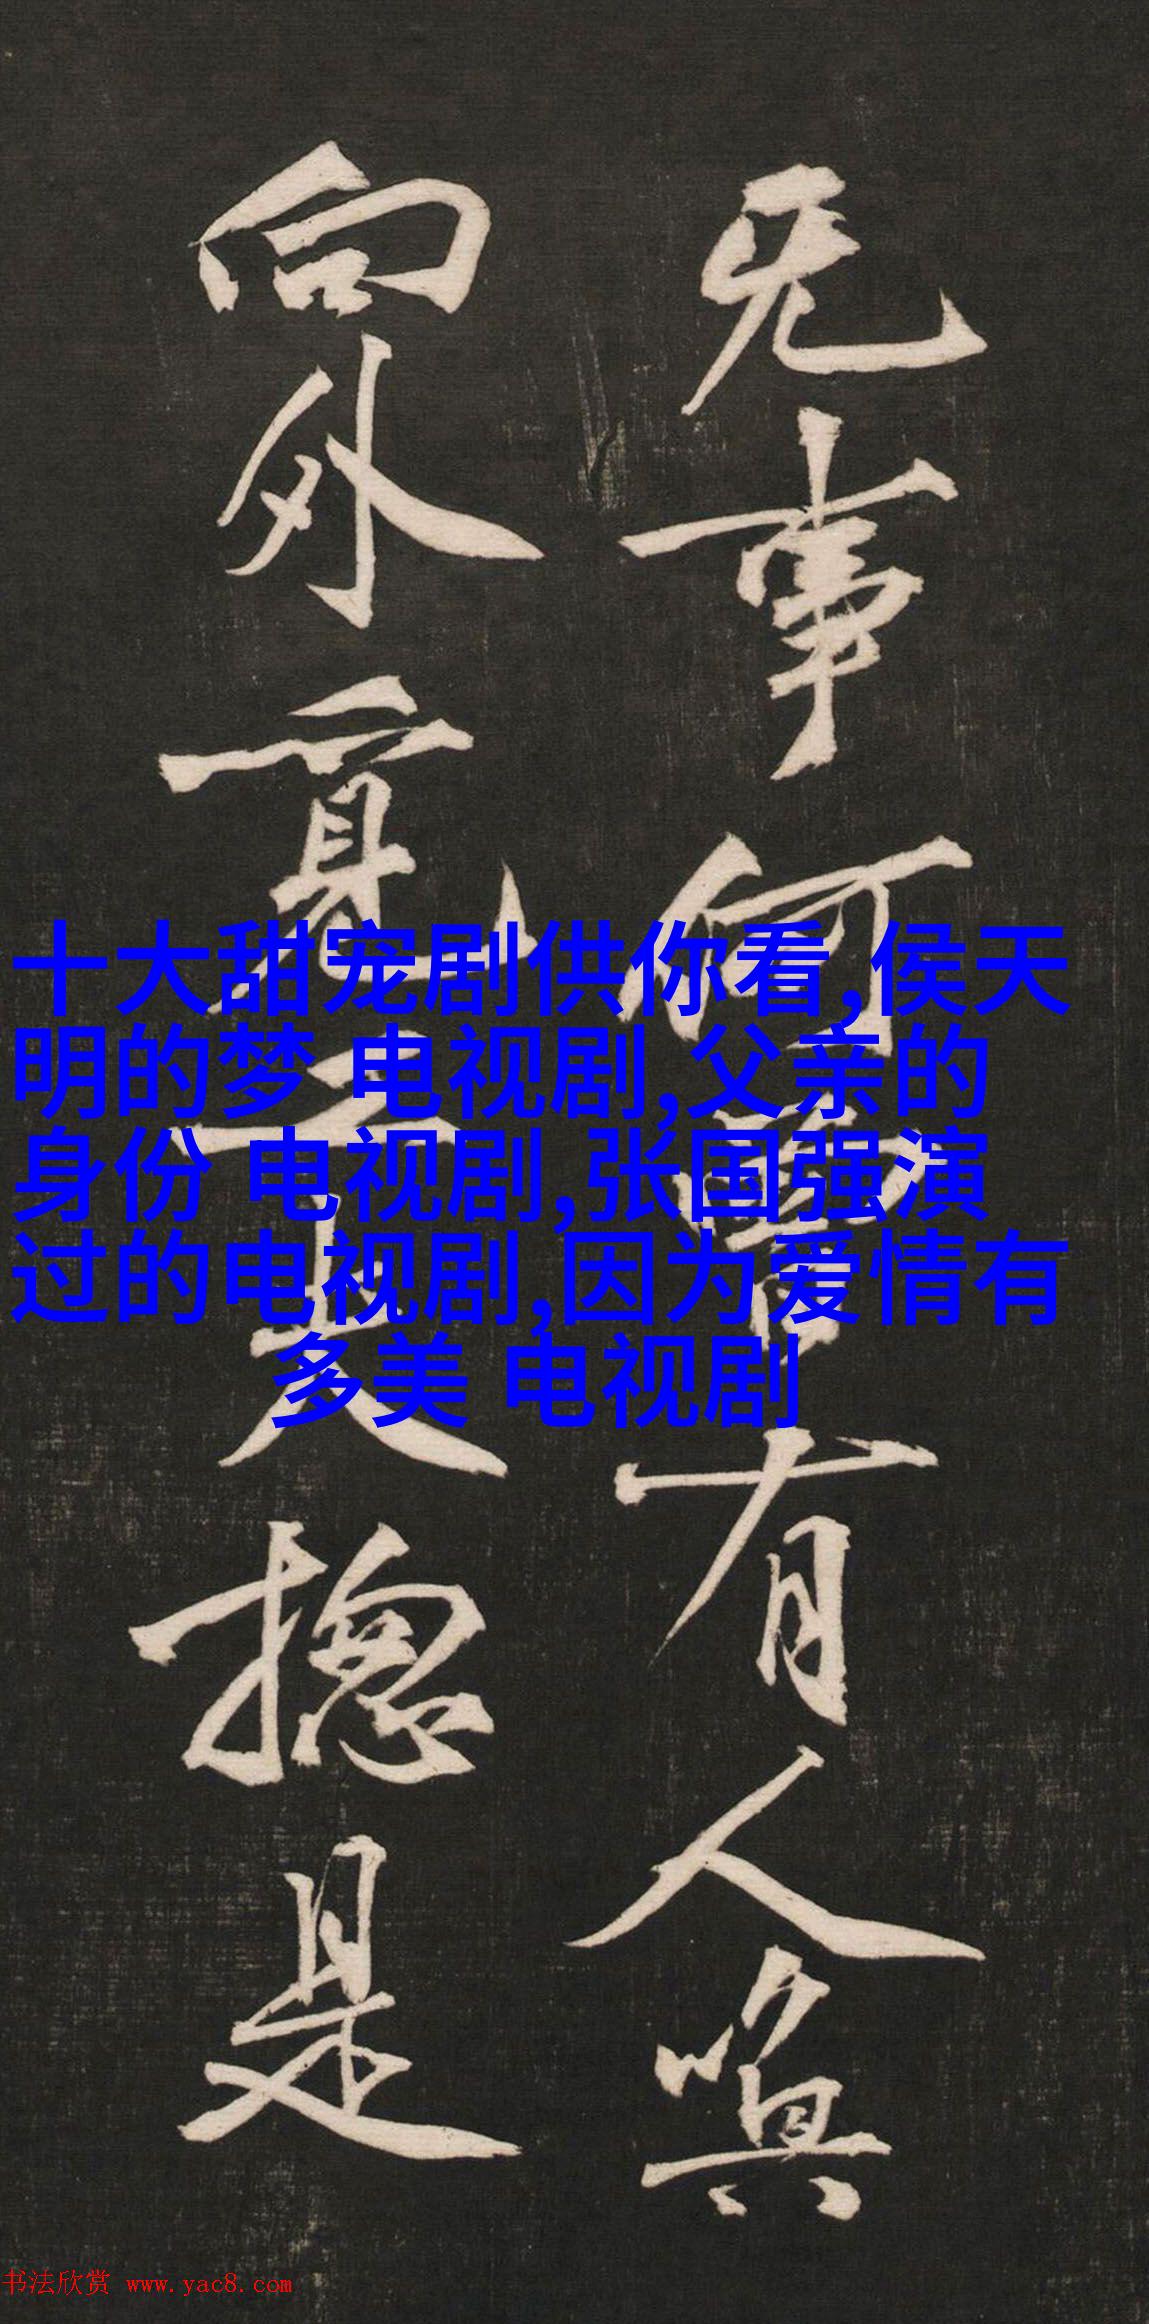 无事何曾有人唤
向外觅工夫揔是
十大甜宠剧供你看,侯天
明的梦 电视剧,父亲的
身份 电视剧,张国强演
过的电视剧,因为爱情有
多美 电视剧
书法欣赏 www.yac8.com